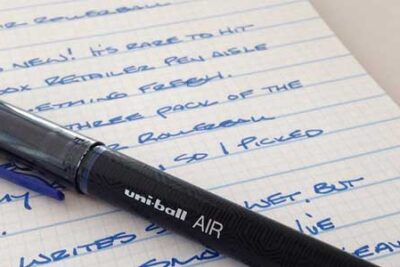 R ROLLERBALL
NEW! IT'S RARE TO HIT
BOX RETAILER PEN AISLE
THING FRESH.
THREE PACK OF THE
ROLLERBALL
, SO I PICKED
uni-ball AIR
WRITES WET. BUT
I'VE